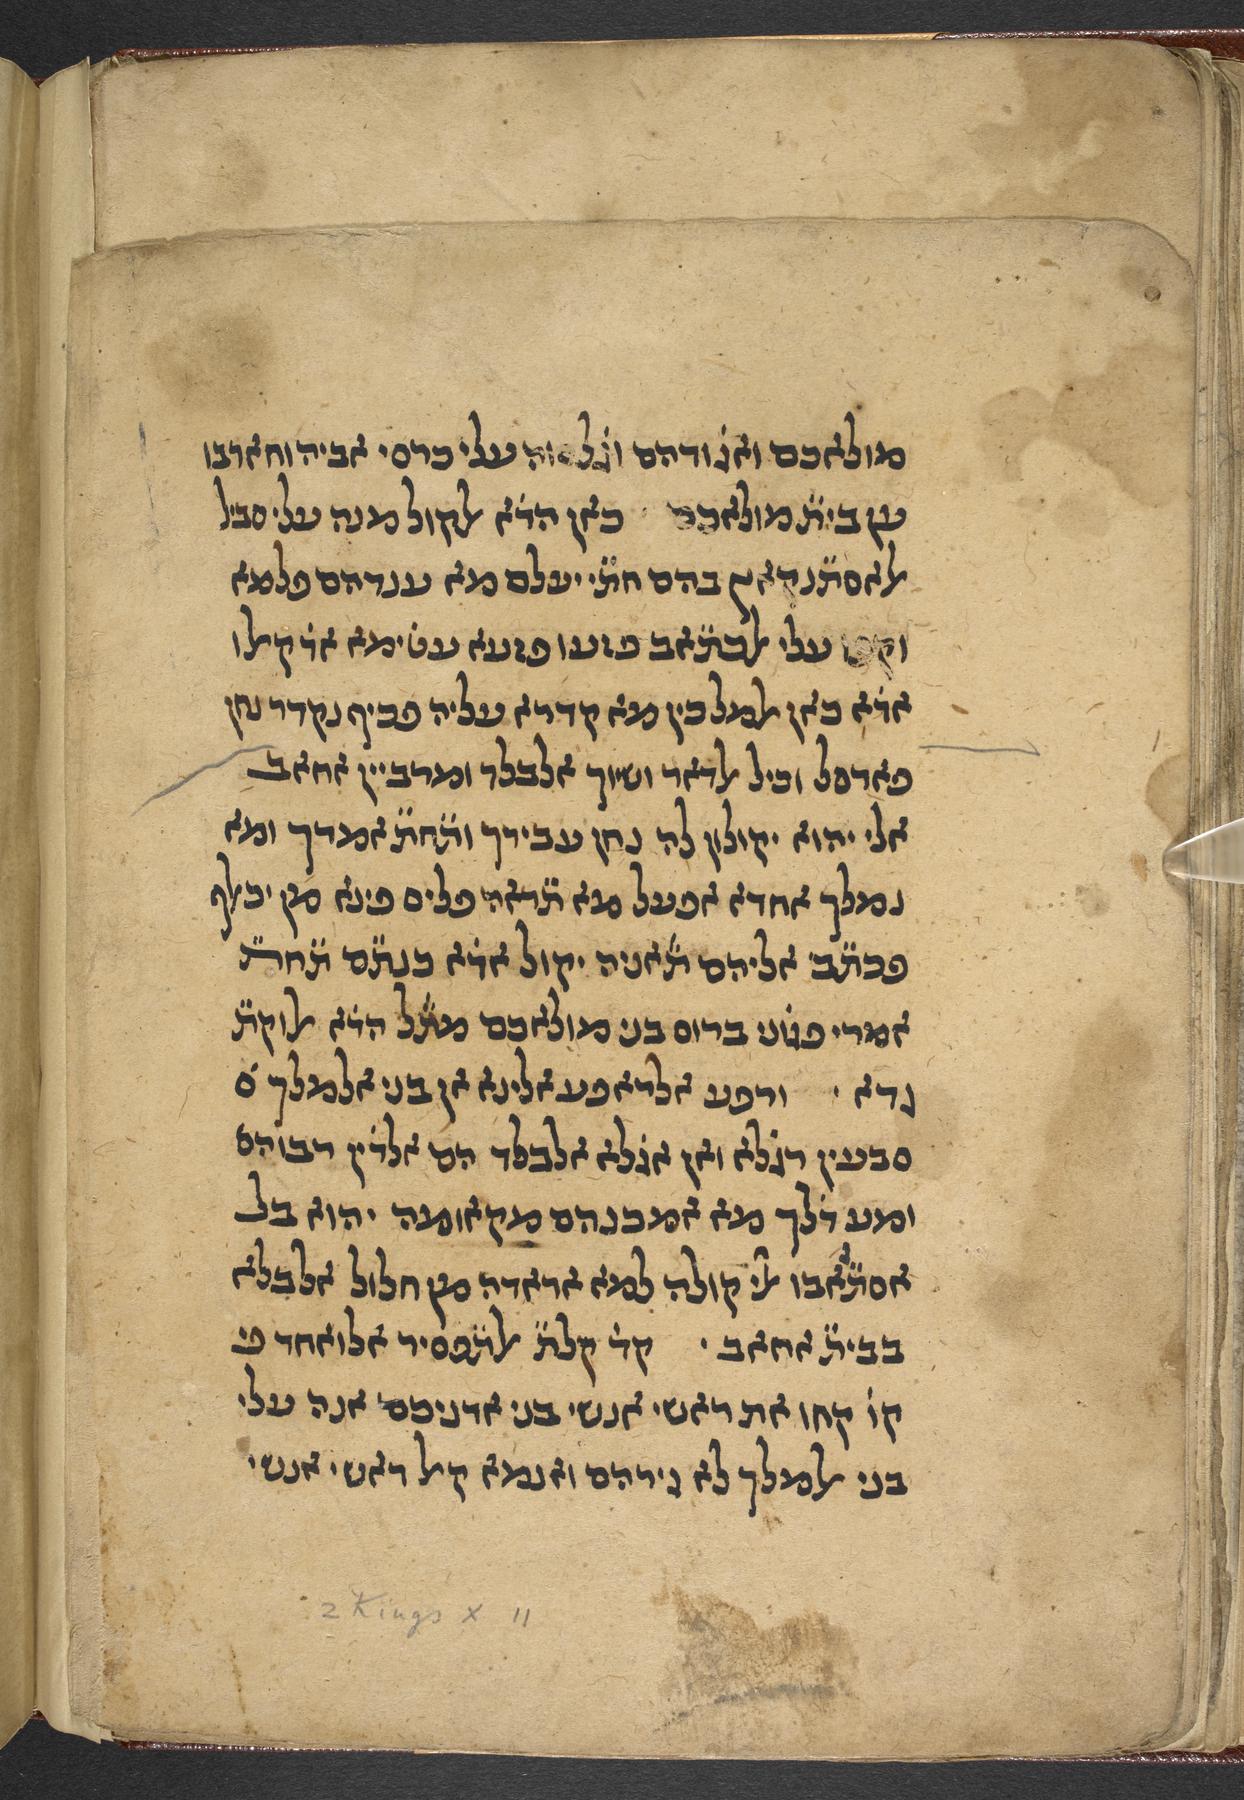 מולאכם ואגׄודהם עלי כרסי אביה וחארבו
ען ביתׄ מולאכם כאן הדׄא לקול מנה עלי סביל
לאסתׄנקאץ בהם חתׄי יעלם מא ענדהם פלמא
עלי לכתׄאב פזעו פזעא עטׄימא אדׄ קאלו
אדׄא כאן למלכין מא קדרא עליה פכיף נקדר נחן
פארסל וכיל לדאר ושיוך אלבלד ומרביין אחאב
אלי יהוא יקולון לה נחן עבידך ותׄחתׄ אמרך ומא
נמלך אחדא אפעל מא תׄראה פליס פינא מן יכאלף
פכתׄב אליהם תׄאניה יקול אדׄא כנתׄם תׄחתׄ
אמרי פגׄוני ברוס בני מולאכם מתׄל הדׄא לוקתׄ
גדא ׳ ורפע אלראפע אלינא אן בני אלמלך סׄ
סבעין רגׄלא ואן אגׄלא אלבלד הם אלדׄין רבוהם
ומע דׄלך מא אמכנהם מקאומה יהוא בל
אסתׄגׄאבו לי קולה למא אראדה מן חלול אלבלא
בביתׄ אחאב ׳ קדׄ קלתׄ לתׄפסיר אלואחד פי
קוׄ קחו את ראשי אנשי בני אדניכם אנה עלי
בני למלך לא גירהם ואנמא קאל ראשי אנשי
2 Kings X 11